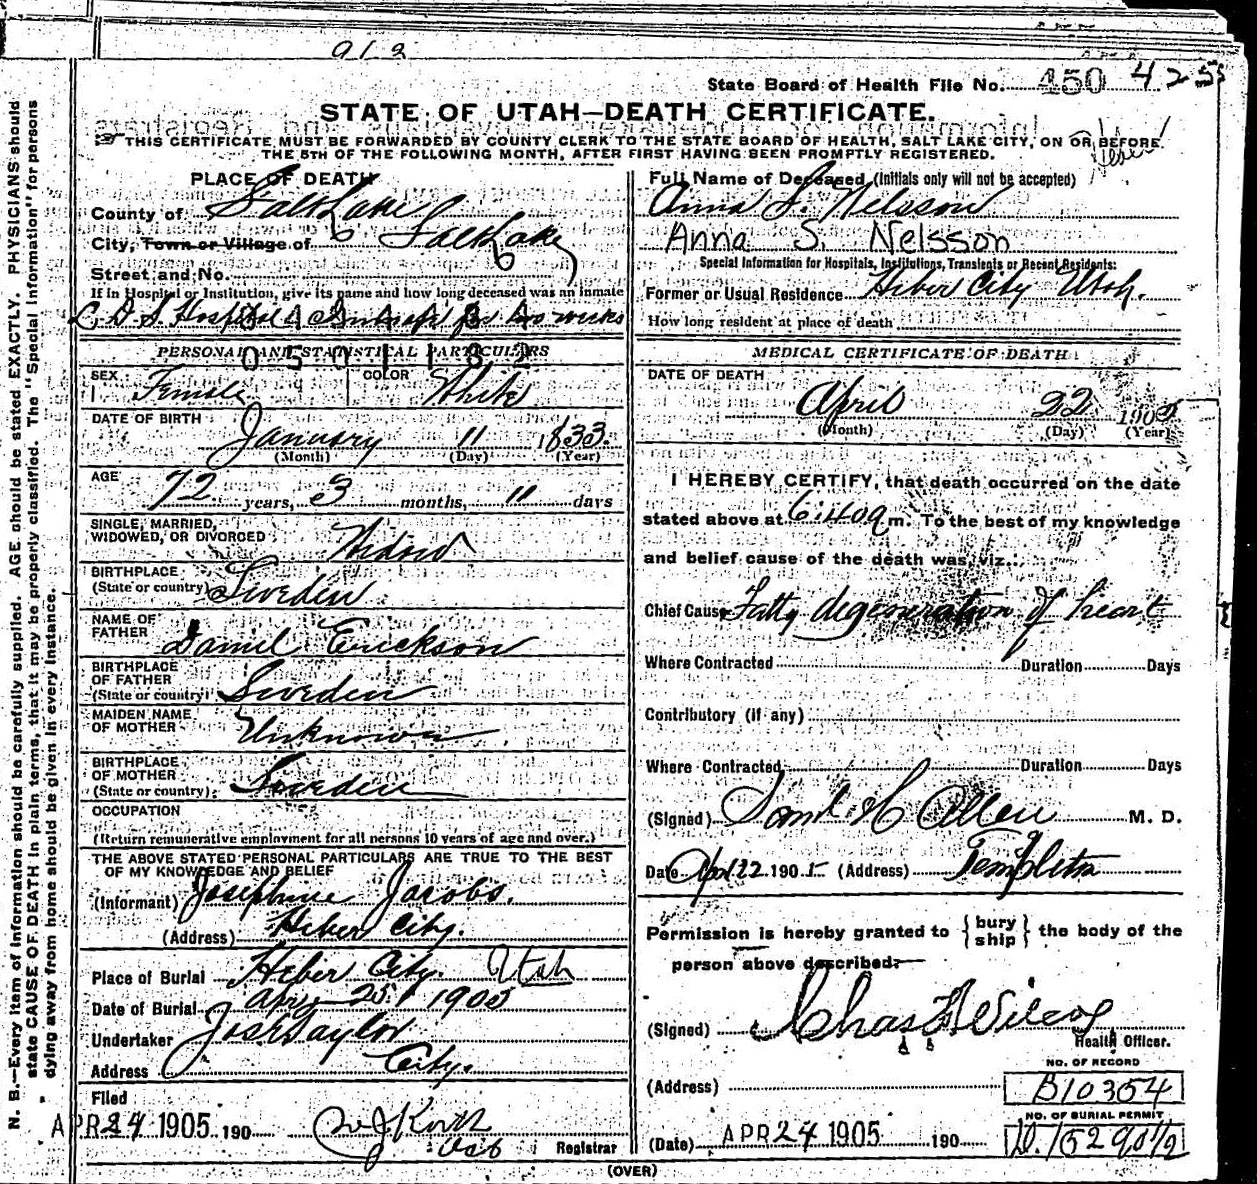 912
State Board of Health File No. 450 425
STATE OF UTAH—DEATH CERTIFICATE.
THIS CERTIFICATE MUST BE FORWARDED BY COUNTY CLERK TO THE STATE BOARD OF HEALTH, SALT LAKE CITY, ON OR BEFORE
THE 5TH OF THE FOLLOWING MONTH, AFTER FIRST HAVING BEEN PROMPTLY REGISTERED.
PLACE OF DEATH
County of Salt Lake
City, Town or Village of Salt Lake
Street and No.
If in Hospital or Institution, give its name and how long deceased was an inmate
L.D.S. Hospital for two weeks
PERSONAL AND STATISTICAL PARTICULARS
0501182
SEX Female COLOR White
DATE OF BIRTH January 11 1833.
(Month) (Day) (Year)
AGE 72 years, 3 months, 11 days
SINGLE, MARRIED, WIDOWED, OR DIVORCED Widow
BIRTHPLACE (State or country) Sweden
NAME OF FATHER Daniel Erickson
BIRTHPLACE OF FATHER (State or country) Sweden
MAIDEN NAME OF MOTHER Unknown
BIRTHPLACE OF MOTHER (State or country) Sweden
OCCUPATION
(Return remunerative employment for all persons 10 years of age and over.)
THE ABOVE STATED PERSONAL PARTICULARS ARE TRUE TO THE BEST
OF MY KNOWLEDGE AND BELIEF
(Informant) Josephine Jacobs.
(Address) Heber City.
Place of Burial Heber City. Utah
Date of Burial Apr 25 1905
Undertaker Jos E Taylor
Address City.
Filed
APR 24 1905 190
Registrar
Full Name of Deceased (Initials only will not be accepted)
Anna S. Nelsson
Anna S. Nelsson
Special Information for Hospitals, Institutions, Transients or Recent Residents:
Former or Usual Residence Heber City Utah.
How long resident at place of death
MEDICAL CERTIFICATE OF DEATH
DATE OF DEATH
April 22 1905
(Month) (Day) (Year)
I HEREBY CERTIFY, that death occurred on the date
stated above at 6:40a m. To the best of my knowledge
and belief cause of the death was, viz.:
Chief Cause Fatty degeneration of heart
Where Contracted Duration Days
Contributory (if any)
Where Contracted Duration Days
(Signed) Saml. H Allen M. D.
Date Apr 22 1905 (Address) Templeton
Permission is hereby granted to bury ship the body of the
person above described.
(Signed) Chas F Wilcox
Health Officer.
(Address)
NO. OF RECORD
B10354
NO. OF BURIAL PERMIT
(Date) APR 24 1905 190
(OVER)
N. B.—Every item of information should be carefully supplied. AGE should be stated EXACTLY. PHYSICIANS should
state CAUSE OF DEATH in plain terms, that it may be properly classified. The "Special Information" for persons
dying away from home should be given in every instance.